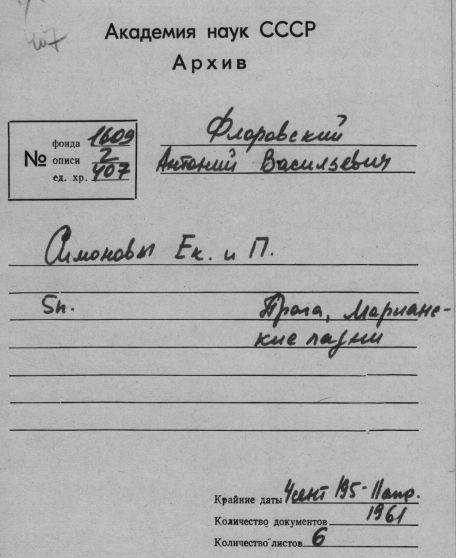 407
Академия наук СССР
Архив
№ фонда 1609
описи 2
ед. хр. 407
Флоровский
Антоний Васильевич
Симоновы Ек. и П.
5п. Прага, Мариане-
кие лазни
Крайние даты 4сент 195 - 11апр.
1961
Количество документов
Количество листов 6